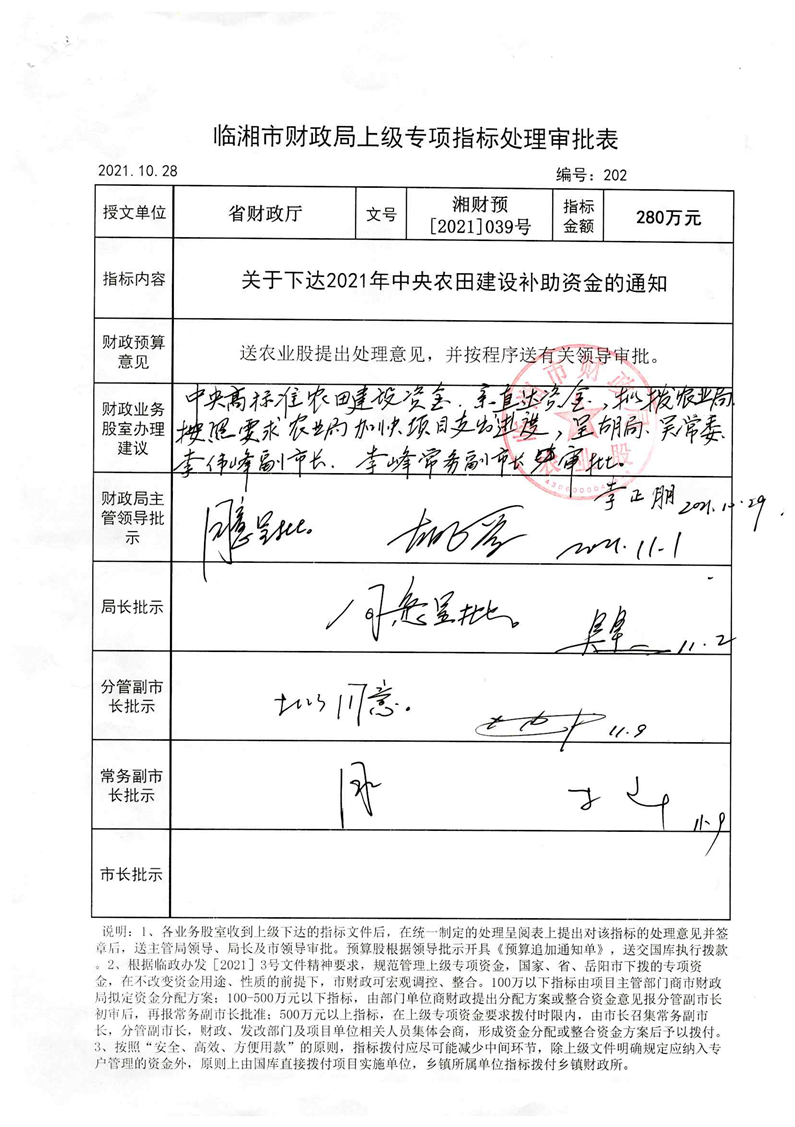 临湘市财政局上级专项指标处理审批表
2021.10.28
编号：202
授文单位
省财政厅
文号
湘财预
[2021]039号
指标
金额
280万元
指标内容
关于下达2021年中央农田建设补助资金的通知
财政预算
意见
送农业股提出处理意见，并按程序送有关领导审批。
财政业务
股室办理
建议
中央高标准农田建设资金，系直达资金，拟拨农业局，
按照要求农业局加快项目支出进度，呈胡局、吴常委、
李伟峰副市长、李峰常务副市长 审批。
李正朋 2021.10.29
财政局主
管领导批
示
同意呈批。
2021.11.1
局长批示
同意呈批。
11.2
分管副市
长批示
同意。
11.9
常务副市
长批示
11.9
市长批示
说明：1、各业务股室收到上级下达的指标文件后，在统一制定的处理呈阅表上提出对该指标的处理意见并签
章后，送主管局领导、局长及市领导审批。预算股根据领导批示开具《预算追加通知单》，送交国库执行拨款
。2、根据临政办发[2021]3号文件精神要求，规范管理上级专项资金，国家、省、岳阳市下拨的专项资
金，在不改变资金用途、性质的前提下，市财政可宏观调控、整合。100万以下指标由项目主管部门商市财政
局拟定资金分配方案；100-500万元以下指标，由部门单位商财政提出分配方案或整合资金意见报分管副市长
初审后，再报常务副市长批准；500万元以上指标，在上级专项资金要求拨付时限内，由市长召集常务副市
长，分管副市长，财政、发改部门及项目单位相关人员集体会商，形成资金分配或整合资金方案后予以拨付。
3、按照“安全、高效、方便用款”的原则，指标拨付应尽可能减少中间环节，除上级文件明确规定应纳入专
户管理的资金外，原则上由国库直接拨付项目实施单位，乡镇所属单位指标拨付乡镇财政所。